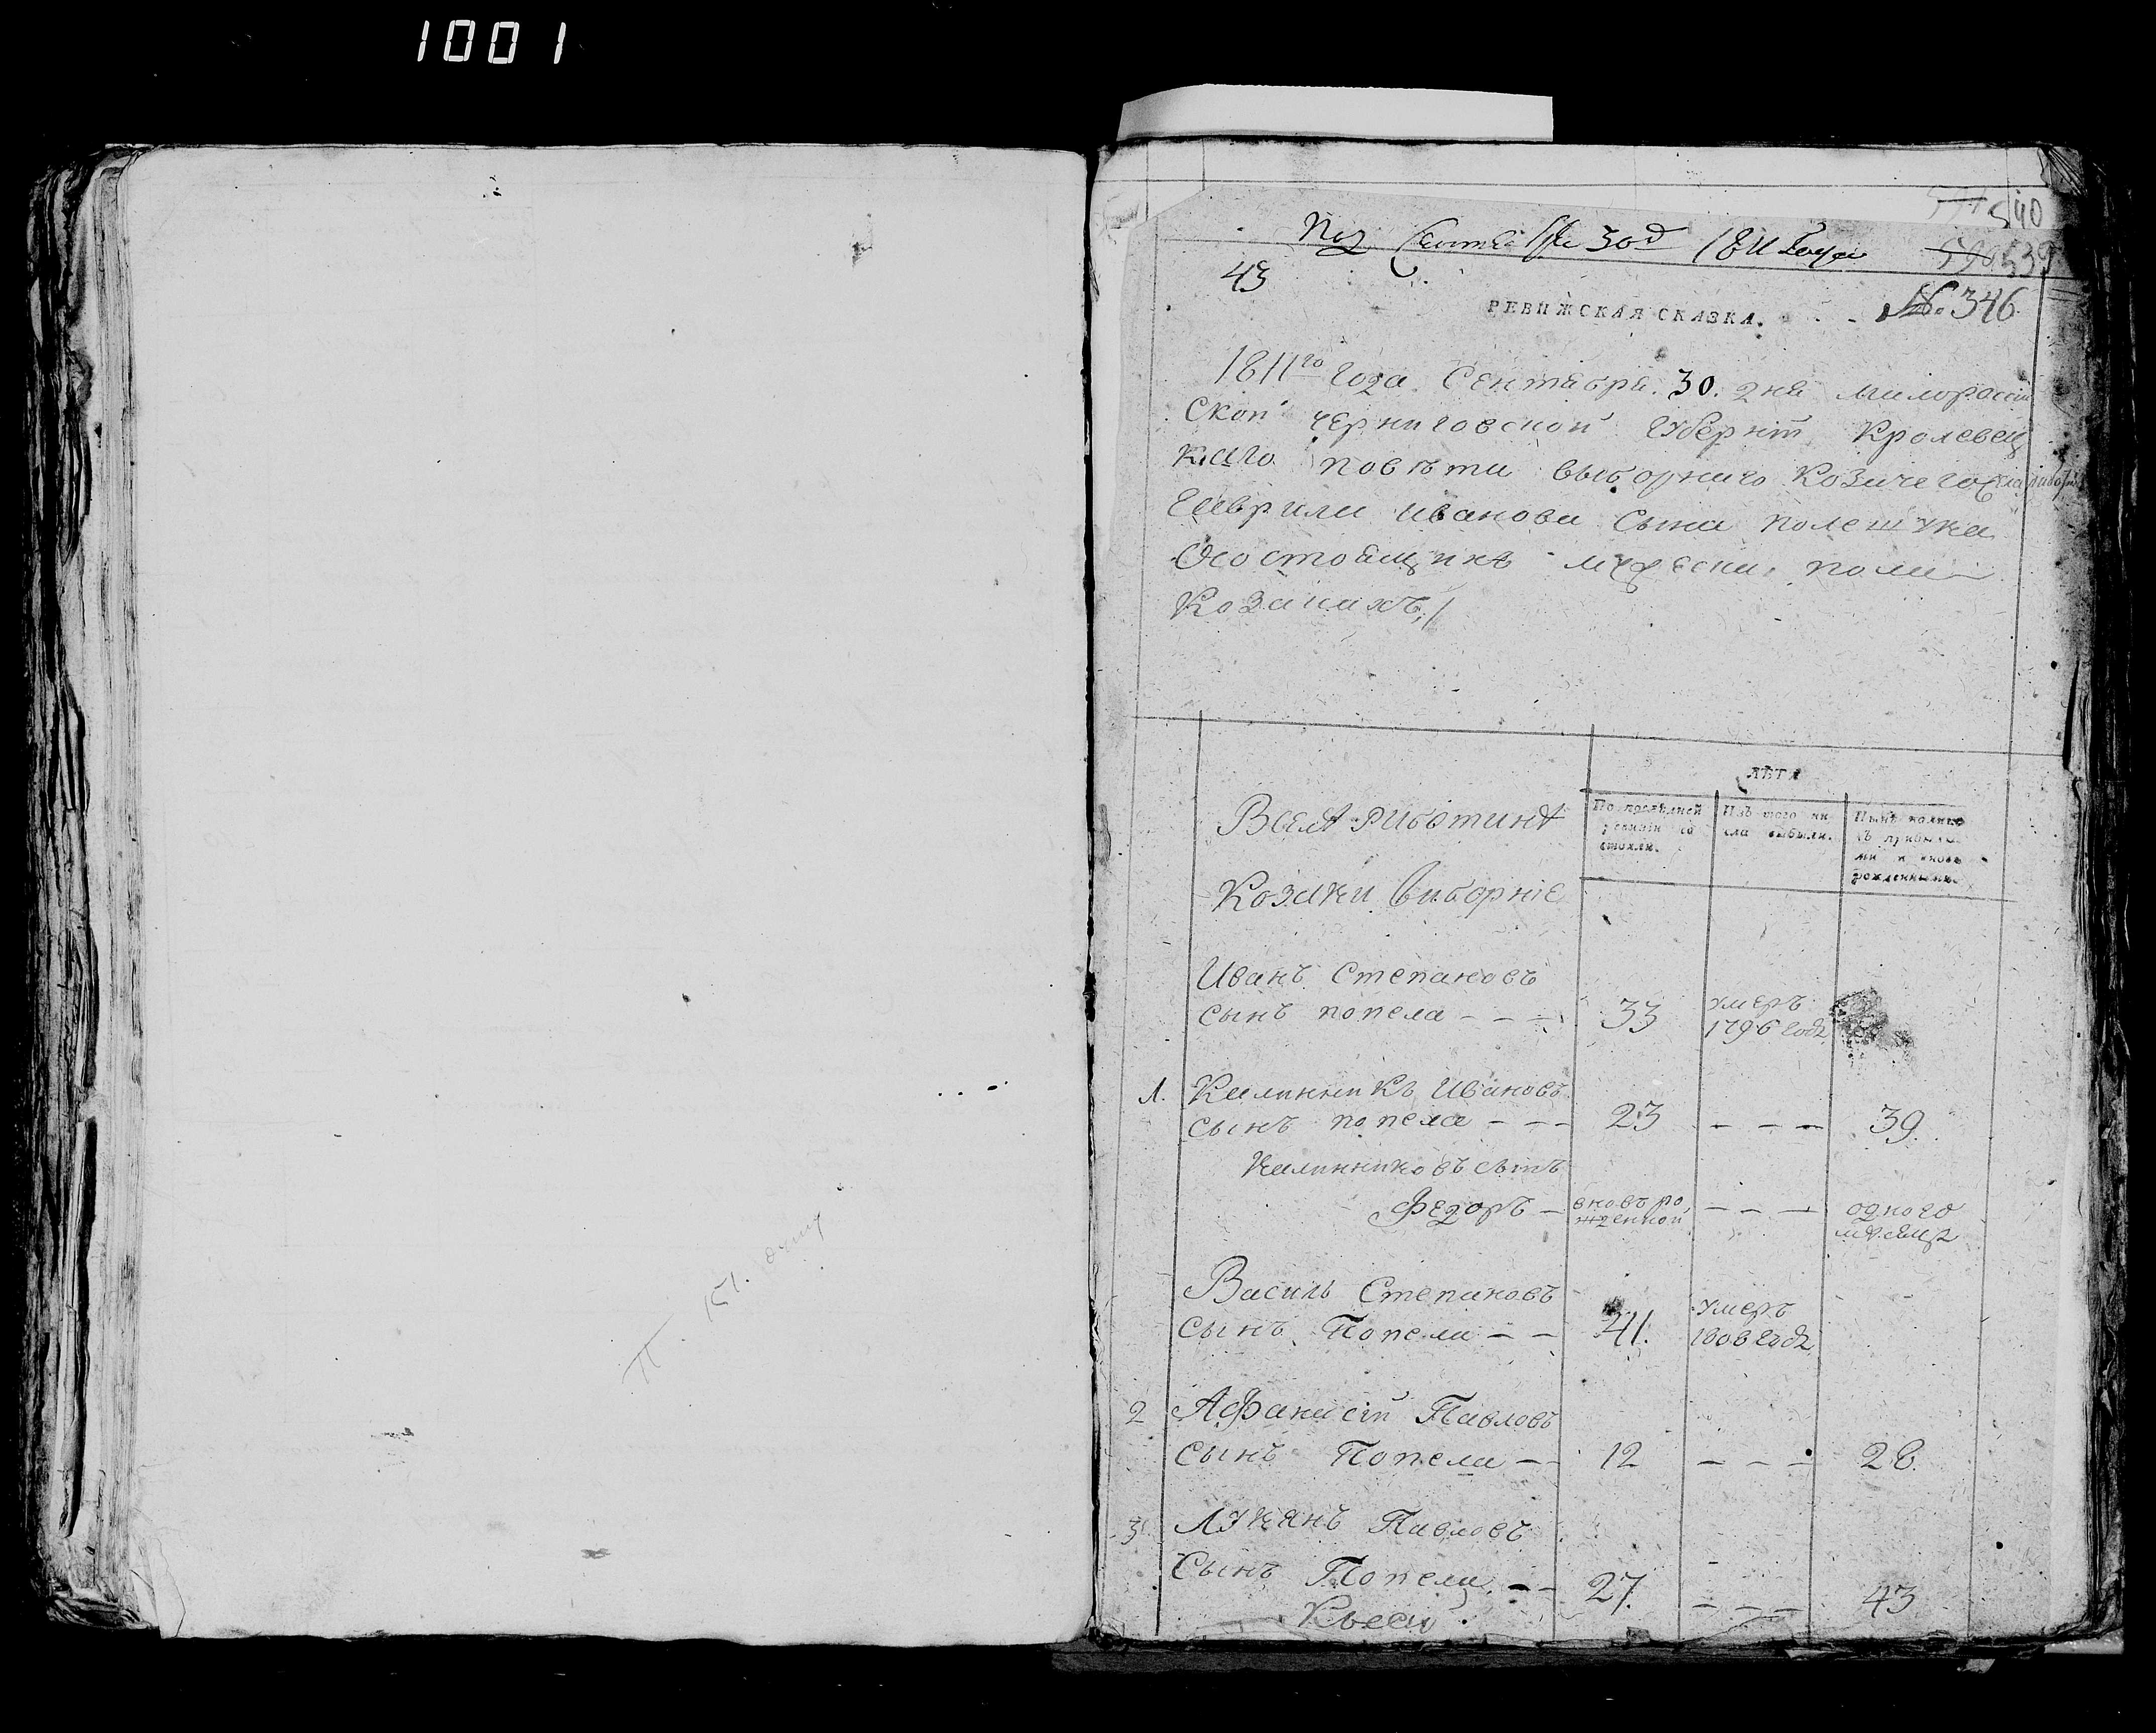 1001
540
Под Сентября 30д 1811 Года
539
43
РЕВИЖСКАЯ СКАЗКА.
№ 346.
1811го Года Сентября. 30. дня малоросій
Ской черниговской Губерніи Кролевец
каго повѣта выборнаго Козачего
Гаврила иванова Сына полешука
О состоящихъ мужеска пола
Козакахъ,
Вселѣ работинѣ
Козаки выборніе
ЛѢТА
По послѣдней ревизіи со стояли.
Изъ того чи сла выбыли.
Нынѣ налицо съ прибылы ми и вновь рожденными.
Иванъ Степановъ
сынъ попела - - - 33 умеръ 1796 году
1. Калинникъ Ивановъ
сынъ попела - - - 23 - - - 39.
Калинниковъ сынъ
Федоръ - вновь ро жденной - - - одного мѣсяца
Василь Степановъ
сынъ Попела - - 41. умеръ 1808 году
2 Афанасій Павловъ
сынъ Попела - - 12 - - - 28.
3 Лукянъ Павловъ
Сынъ Попела. - - 27. - - - 43